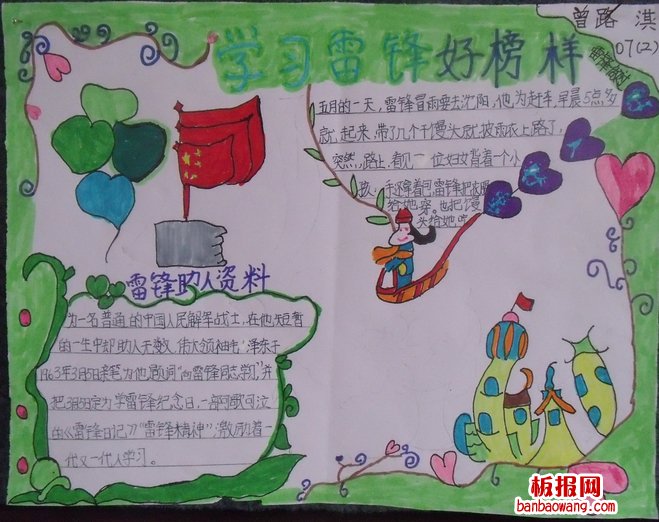 曾路淇
07(2)
学习雷锋好榜样
五月的一天,雷锋冒雨要去沈阳,他为赶车,早晨5点多
就起来,带了几个干馒头就披雨衣上路了,
突然,路上,看见一位妇女背着一个小
孩,手还牵着
给她穿。也把馒
头给她吃
雷锋助人资料
为一名普通的中国人民解军战士,在他短暂
的一生中却助人无数,伟大领袖毛泽东于
1963年3月5日亲笔为他题词"向雷锋同志学习"并
把3月5日定为学雷锋纪念日,一部可歌可泣
的《雷锋日记》"雷锋精神",激励着一
代又一代人学习。
板报网
banbaowang.com